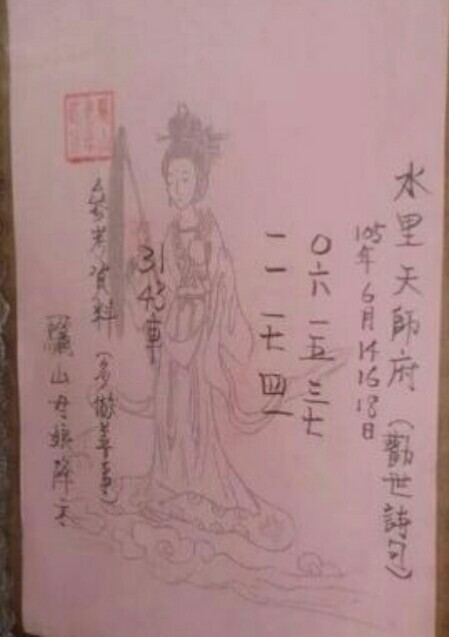 水里天師府（勸世詩句）
105年6月14 16 18日
〇六 一五 三七
一一 一七 四一
31 43車
參考資料（多做善事）
驪山母娘降文